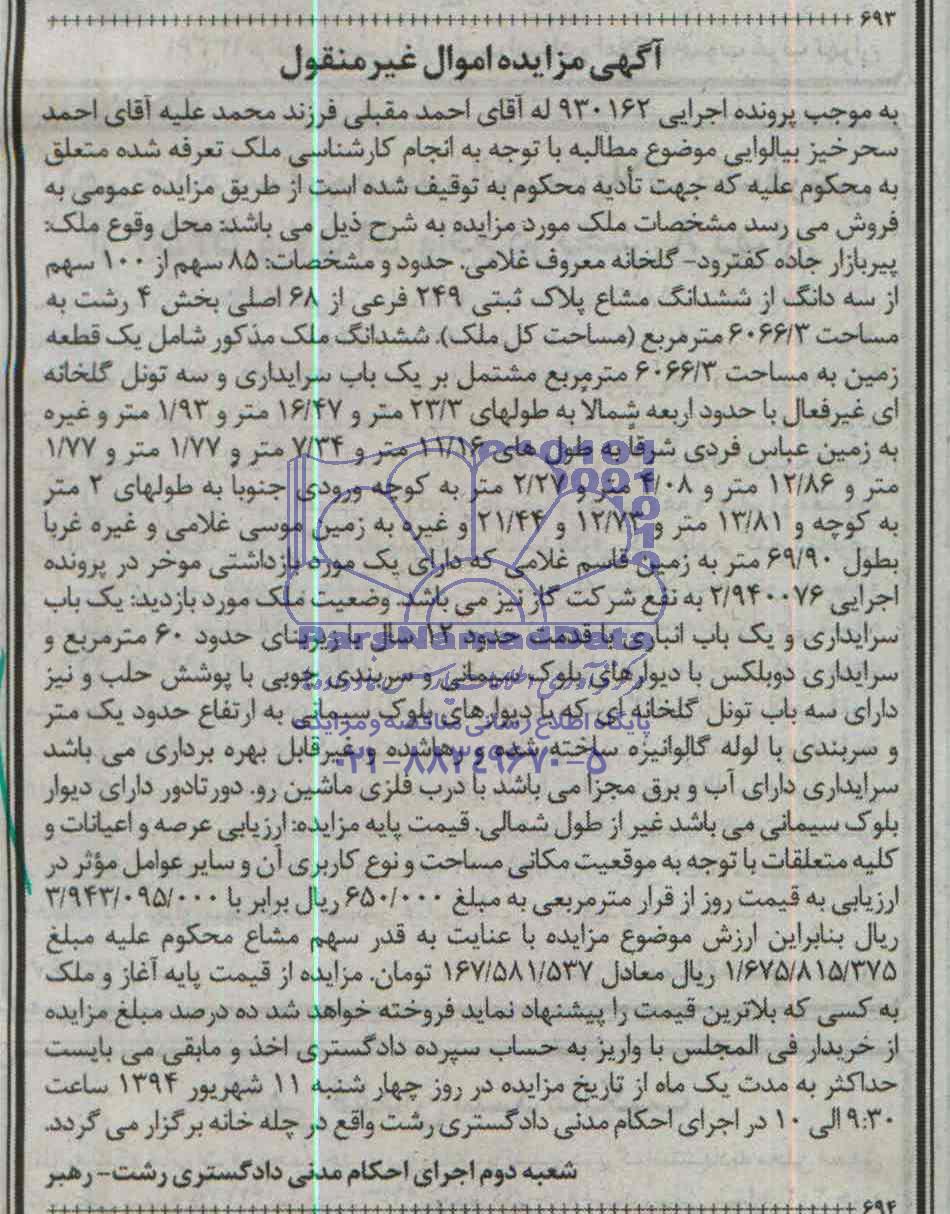 ۶۹۳
آگهی مزایده اموال غیرمنقول
به موجب پرونده اجرایی ۹۳۰۱۶۲ له آقای احمد مقبلی فرزند محمد علیه آقای احمد
سحرخیز بیالوایی موضوع مطالبه با توجه به انجام کارشناسی ملک تعرفه شده متعلق
به محکوم علیه که جهت تأدیه محکوم به توقیف شده است از طریق مزایده عمومی به
فروش می رسد مشخصات ملک مورد مزایده به شرح ذیل می باشد: محل وقوع ملک:
پیربازار جاده کفترود- گلخانه معروف غلامی. حدود و مشخصات: ۸۵ سهم از ۱۰۰ سهم
از سه دانگ از ششدانگ مشاع پلاک ثبتی ۲۴۹ فرعی از ۶۸ اصلی بخش ۴ رشت به
مساحت ۶۰۶۶/۳ مترمربع (مساحت کل ملک). ششدانگ ملک مذکور شامل یک قطعه
زمین به مساحت ۶۰۶۶/۳ مترمربع مشتمل بر یک باب سرایداری و سه تونل گلخانه
ای غیرفعال با حدود اربعه شمالاً به طولهای ۲۳/۳ متر و ۱۶/۴۷ متر و ۱/۹۳ متر و غیره
به زمین عباس فردی شرقاً به طول های ۱۱/۱۶ متر و ۷/۳۴ متر و ۱/۷۷ متر و ۱/۷۷
متر و ۱۲/۸۶ متر و ۴/۰۸ متر و ۲/۲۷ متر به کوچه ورودی جنوبا به طولهای ۲ متر
به کوچه و ۱۳/۸۱ متر و ۱۲/۷۳ و ۲۱/۴۴ و غیره به زمین موسی غلامی و غیره غربا
بطول ۶۹/۹۰ متر به زمین قاسم غلامی که دارای یک مورد بازداشتی موخر در پرونده
اجرایی ۲/۹۴۰۰۷۶ به نفع شرکت گاز نیز می باشد. وضعیت ملک مورد بازدید: یک باب
سرایداری و یک باب انباری با قدمت حدود ۱۲ سال با زیربنای حدود ۶۰ مترمربع و
سرایداری دوبلکس با دیوارهای بلوک سیمانی و سربندی چوبی با پوشش حلب و نیز
دارای سه باب تونل گلخانه ای که با دیوارهای بلوک سیمانی به ارتفاع حدود یک متر
و سربندی با لوله گالوانیزه ساخته شده و رهاشده و غیرقابل بهره برداری می باشد
سرایداری دارای آب و برق مجزا می باشد با درب فلزی ماشین رو. دور تادور دارای دیوار
بلوک سیمانی می باشد غیر از طول شمالی. قیمت پایه مزایده: ارزیابی عرصه و اعیانات و
کلیه متعلقات با توجه به موقعیت مکانی مساحت و نوع کاربری آن و سایر عوامل مؤثر در
ارزیابی به قیمت روز از قرار مترمربعی به مبلغ ۶۵۰/۰۰۰ ریال برابر با ۳/۹۴۳/۰۹۵/۰۰۰
ریال بنابراین ارزش موضوع مزایده با عنایت به قدر سهم مشاع محکوم علیه مبلغ
۱/۶۷۵/۸۱۵/۳۷۵ ریال معادل ۱۶۷/۵۸۱/۵۳۷ تومان. مزایده از قیمت پایه آغاز و ملک
به کسی که بلاترین قیمت را پیشنهاد نماید فروخته خواهد شد ده درصد مبلغ مزایده
از خریدار فی المجلس با واریز به حساب سپرده دادگستری اخذ و مابقی می بایست
حداکثر به مدت یک ماه از تاریخ مزایده در روز چهار شنبه ۱۱ شهریور ۱۳۹۴ ساعت
۹:۳۰ الی ۱۰ در اجرای احکام مدنی دادگستری رشت واقع در چله خانه برگزار می گردد.
شعبه دوم اجرای احکام مدنی دادگستری رشت- رهبر
۶۹۴
ParsNamadData
پایگاه اطلاع رسانی مناقصه و مزایده
۰۲۱-۸۸۳۴۹۶۷۰-۵